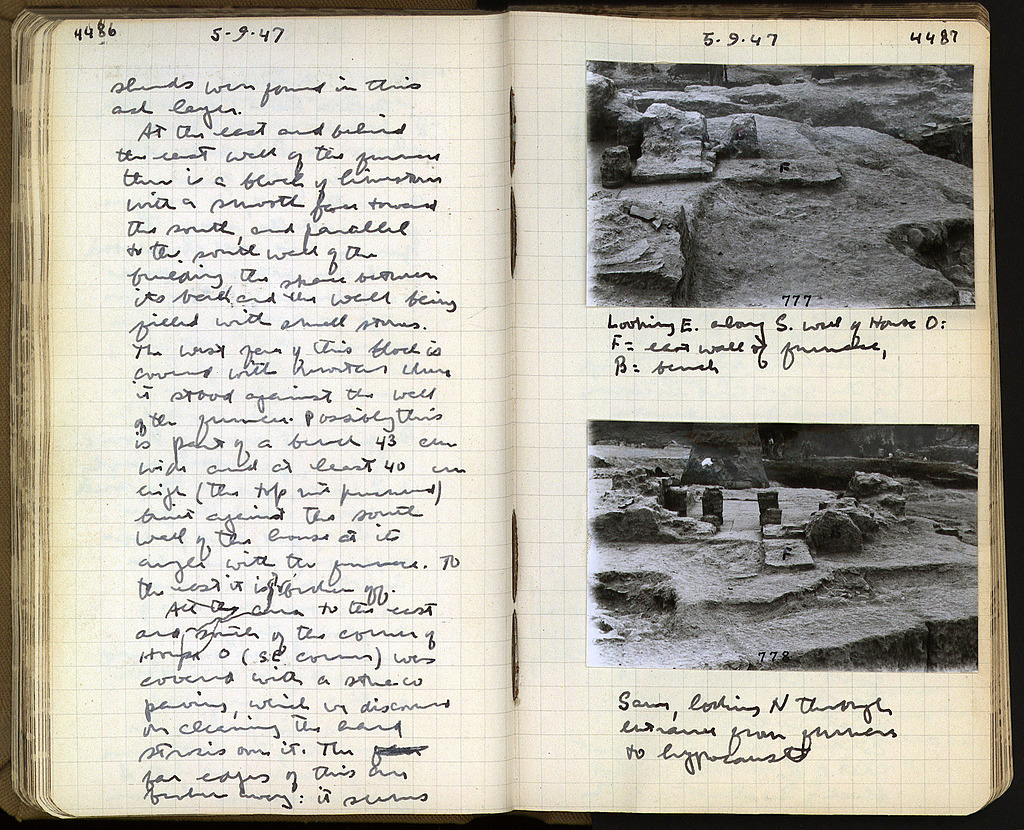 4486
5-9-47
sherds were found in this
ash layer.
At the east and behind
the east wall of the furnace
there is a block of limestone
with a smooth face toward
the south, and parallel
to the south wall of the
building the space between
its back and the wall being
filled with small stones.
The west face of this block is
covered with mortar where
it stood against the wall
of the furnace. Possibly this
is part of a bench 43 cm
wide and at least 40 cm
high (the top not preserved)
built against the south
wall of the house at its
angle with the furnace. To
the east it is broken off.
All the area to the east
and south of the corner of
House O (SE corner) was
covered with a stucco
paving, which we discovered
on cleaning the hard
strosis over it. The
far edges of this are
broken away: it seems
5-9-47
4487
F
777
Looking E. along S. wall of House O:
F = east wall of furnace,
B = bench
F
778
Same, looking N through
entrance from furnace
to hypocaust